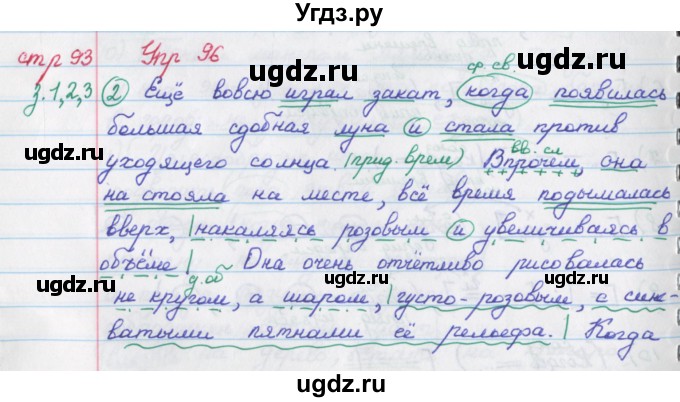 Угдз.ру
стр 93 Упр 96
з.1,2,3 ② Ещё вовсю играл закат, когда появилась
ср. св.
большая сдобная луна и стала против
уходящего солнца. (прид. врем) Впрочем, она
вв. сл
на стояла на месте, всё время подымалась
вверх, |накаляясь розовым и увеличиваясь в
объёме| Она очень отчётливо рисовалась
д. об
не кругом, а шаром, |густо-розовым, с сине-
ватыми пятнами её рельефа.| Когда
ugdz.ru
ugdz.ru
ugdz.ru
ugdz.ru
ugdz.ru
ugdz.ru
ugdz.ru
ugdz.ru
ugdz.ru
ugdz.ru
ugdz.ru